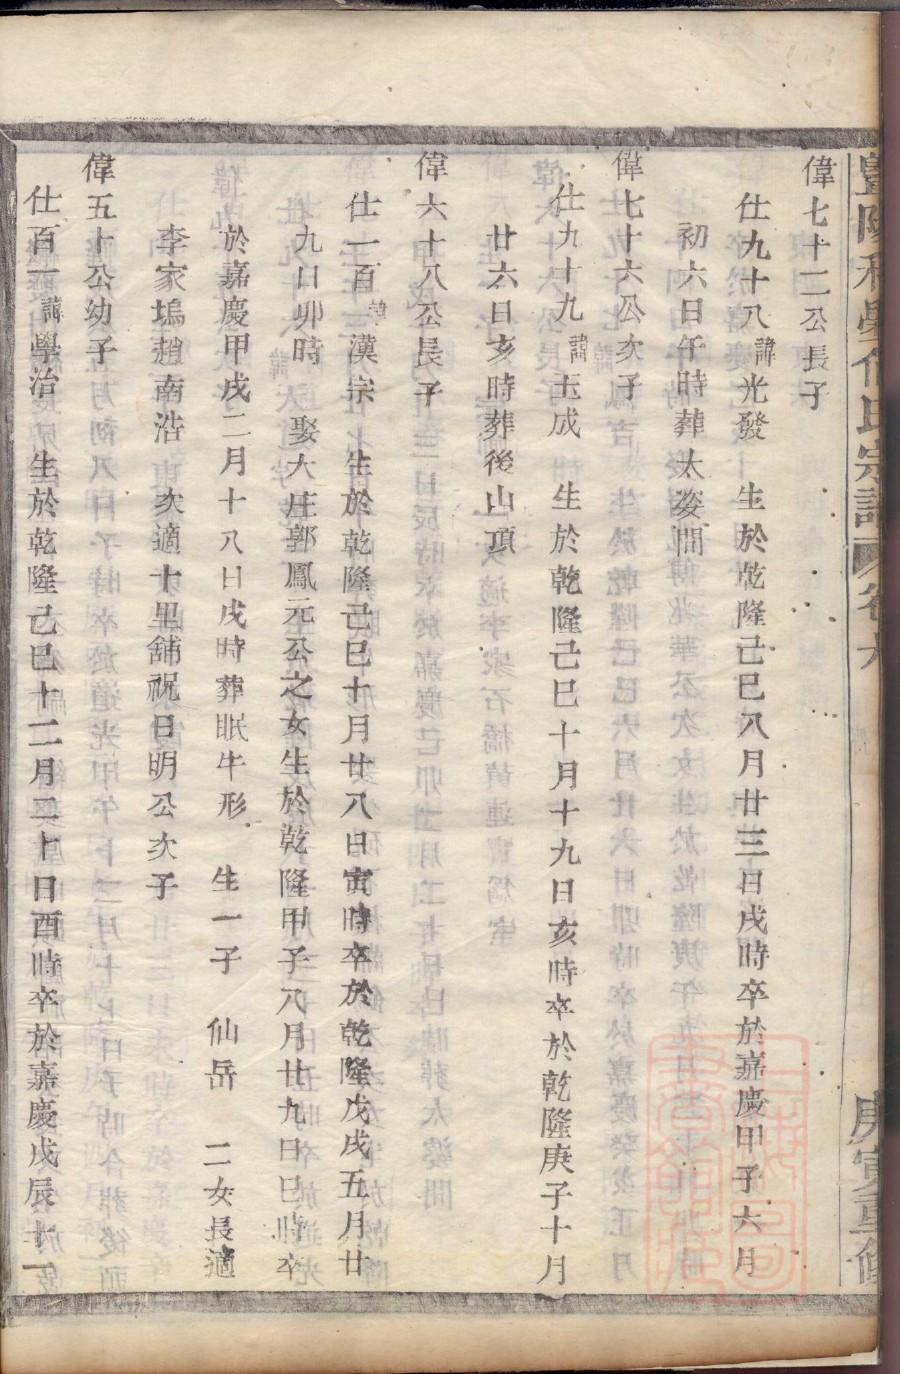 偉七十二公長子
仕九十八諱光發 生於乾隆己巳八月廿三日戌時卒於嘉慶甲子六月
初六日午時葬太婆間
偉七十六公次子
仕九十九諱玉成 生於乾隆己巳十月十九日亥時卒於乾隆庚子十月
廿六日亥時葬後山頂
偉六十八公長子
仕一百諱漢宗 生於乾隆己巳十月廿八日寅時卒於乾隆戊戌五月廿
九日卯時 娶大庄郭鳳元公之女生於乾隆甲子八月廿九日巳時卒
於嘉慶甲戌二月十八日戌時葬眠牛形 生一子 仙岳 二女長適
李家塢趙南浩 次適十里舖祝日明公次子
偉五十公幼子
仕百一諱學治 生於乾隆己巳十二月二十日酉時卒於嘉慶戊辰十一
宗譜 卷六
庚寅重修